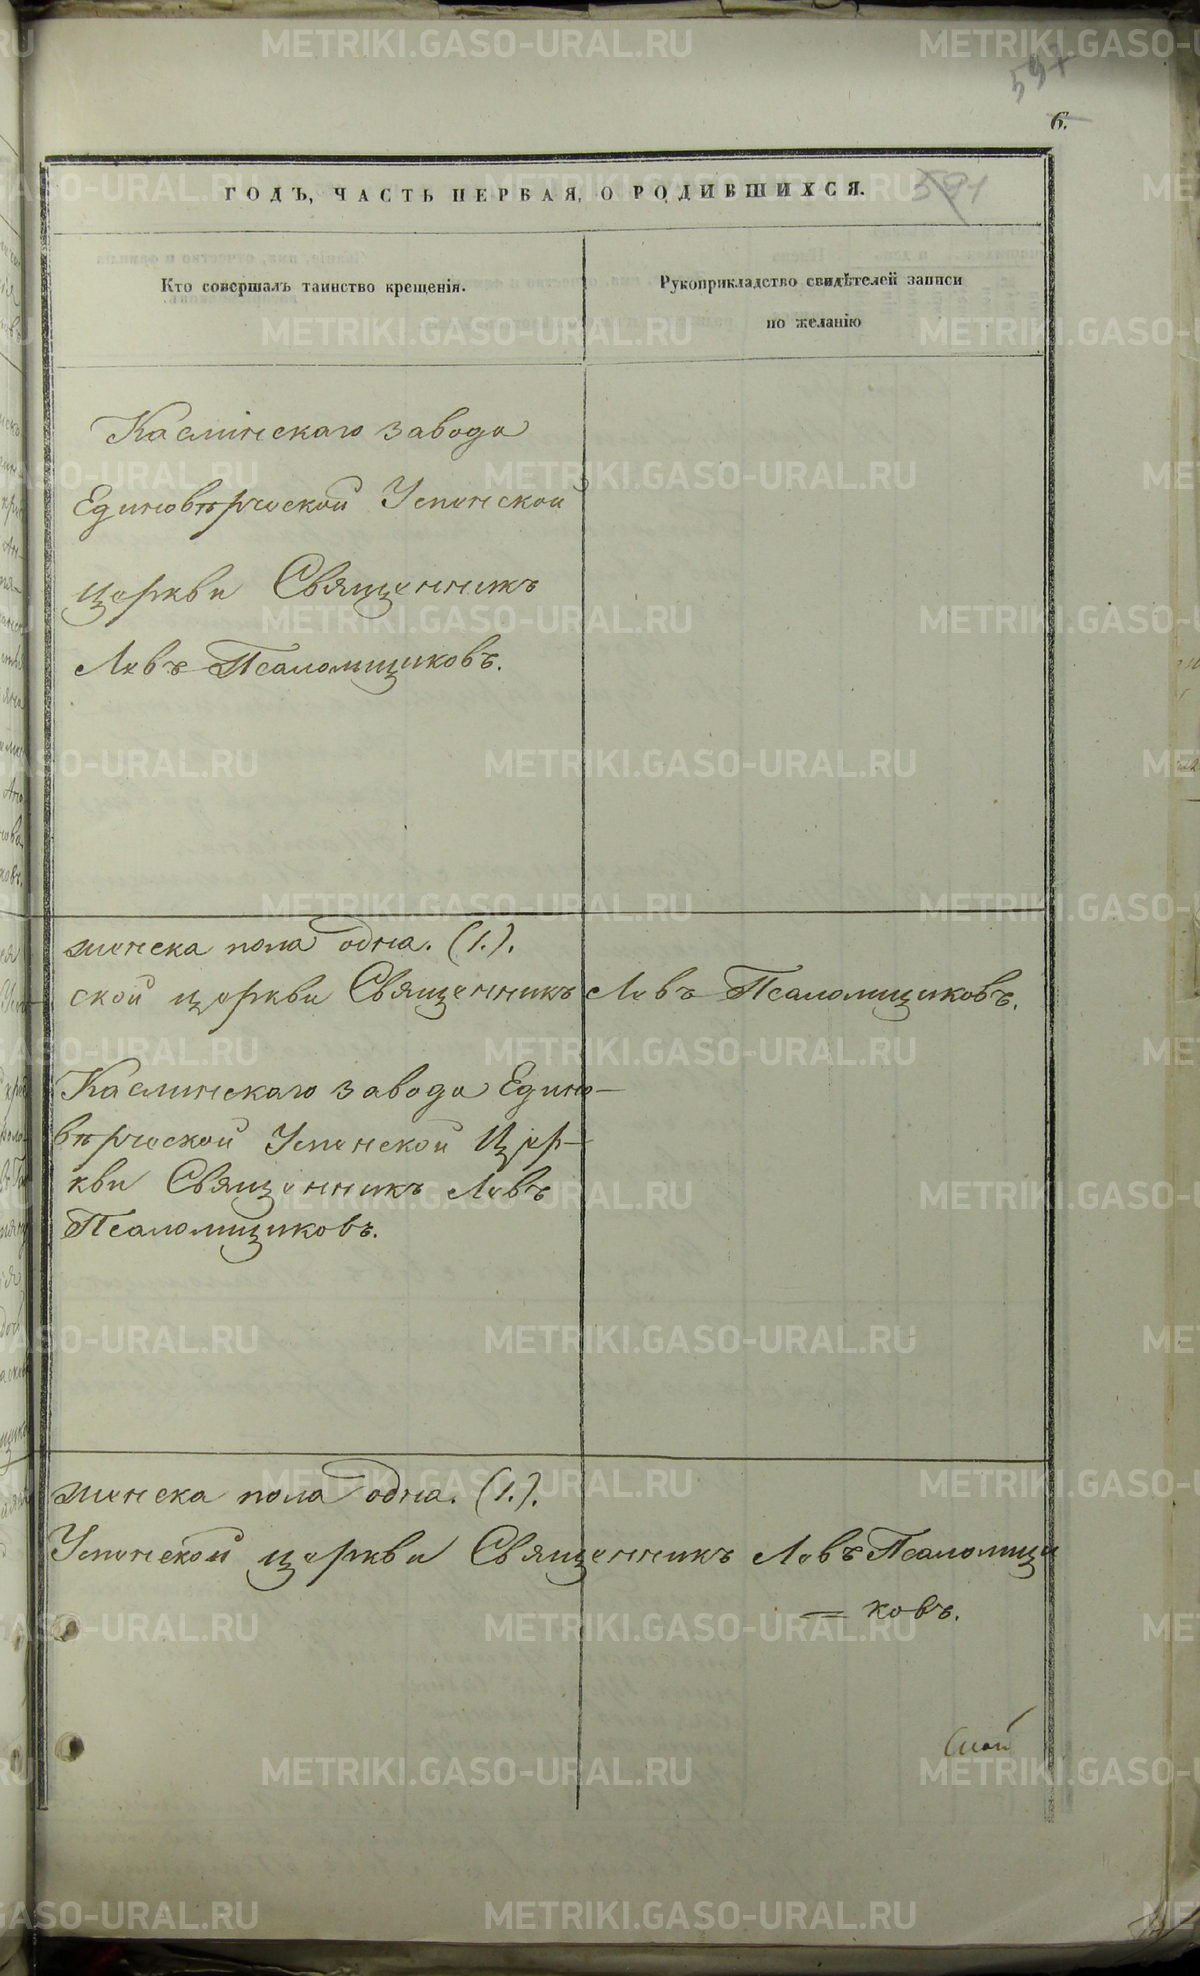 597
6.
591
ГОДЪ, ЧАСТЬ ПЕРВАЯ, О РОДИВШИХСЯ.
Кто совершалъ таинство крещенія.
Рукоприкладство свидѣтелей записи
по желанію
Каслинскаго завода
Единовѣрческой Успенской
церкви Священникъ
Левъ Псаломщиковъ.
женска пола одна. (1.).
ской церкви Священникъ Левъ Псаломщиковъ.
Каслинскаго завода Едино-
вѣрческой Успенской Цер-
кви Священникъ Левъ
Псаломщиковъ.
женска пола одна. (1.).
Успенской церкви Священникъ Левъ Псаломщи
= ковъ.
METRIKI.GASO-URAL.RU